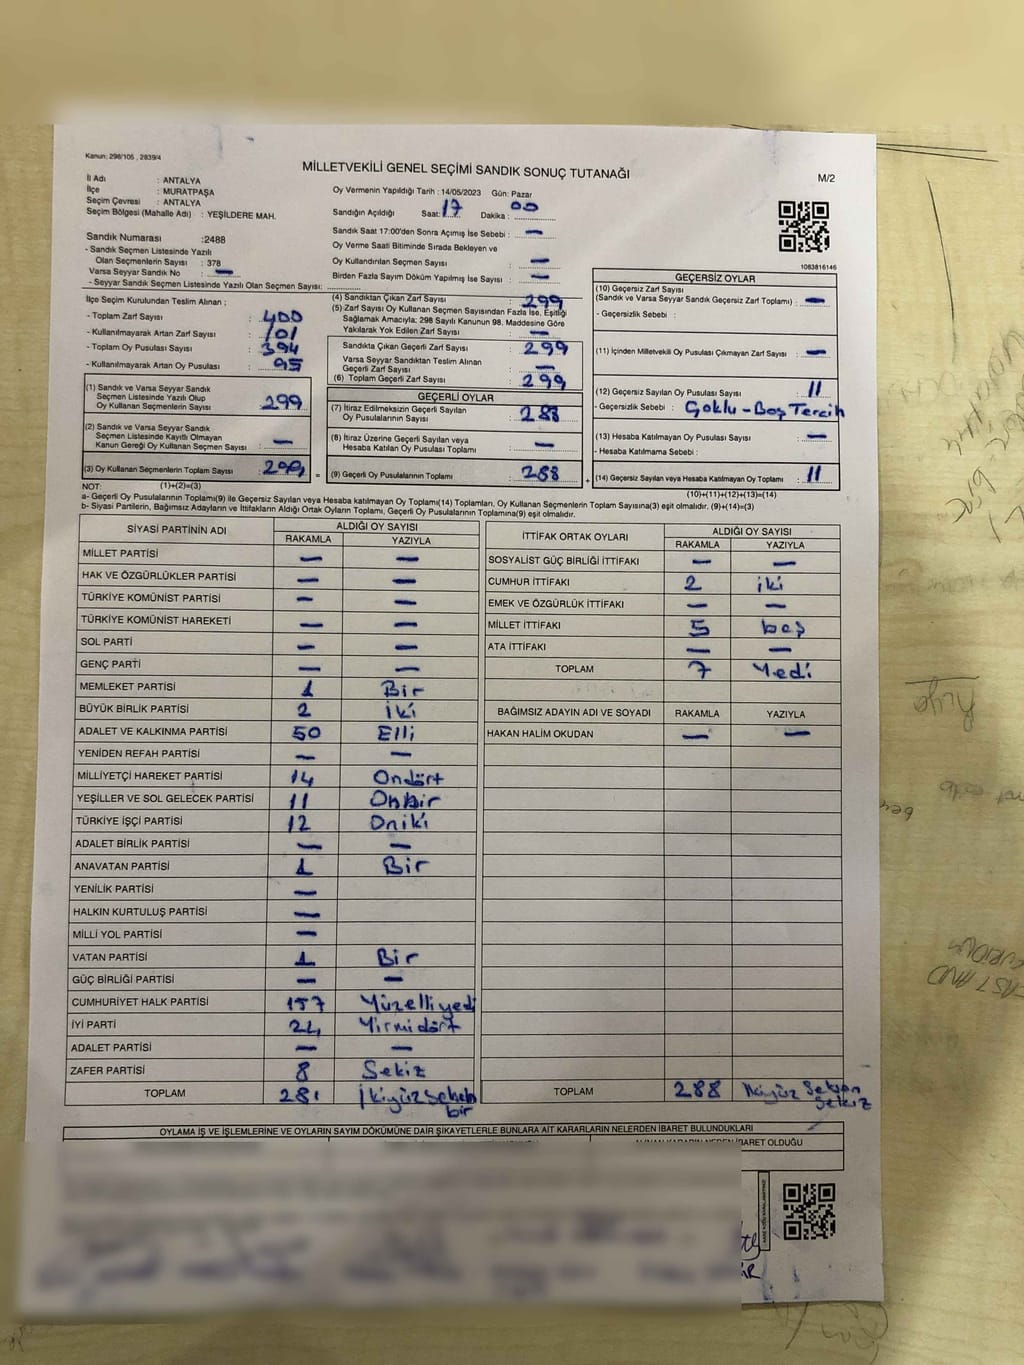 Kanun; 298/105 , 2839/4
MİLLETVEKİLİ GENEL SEÇİMİ SANDIK SONUÇ TUTANAĞI
M/2
İl Adı : ANTALYA
İlçe : MURATPAŞA
Seçim Çevresi : ANTALYA
Seçim Bölgesi (Mahalle Adı) : YEŞİLDERE MAH.
Sandık Numarası :2488
- Sandık Seçmen Listesinde Yazılı
Olan Seçmenlerin Sayısı : 378
Varsa Seyyar Sandık No : —
- Seyyar Sandık Seçmen Listesinde Yazılı Olan Seçmen Sayısı: ..............
Oy Vermenin Yapıldığı Tarih : 14/05/2023 Gün: Pazar
Sandığın Açıldığı Saat: 17 Dakika : 00
Sandık Saat 17:00'den Sonra Açımış İse Sebebi : —
Oy Verme Saati Bitiminde Sırada Bekleyen ve
Oy Kullandırılan Seçmen Sayısı : —
Birden Fazla Sayım Döküm Yapılmış İse Sayısı : —
1083816146
İlçe Seçim Kurulundan Teslim Alınan ;
- Toplam Zarf Sayısı : 400
- Kullanılmayarak Artan Zarf Sayısı : 101
- Toplam Oy Pusulası Sayısı : 394
- Kullanılmayarak Artan Oy Pusulası : 95
(1) Sandık ve Varsa Seyyar Sandık
Seçmen Listesinde Yazılı Olup
Oy Kullanan Seçmenlerin Sayısı : 299
(2) Sandık ve Varsa Seyyar Sandık
Seçmen Listesinde Kayıtlı Olmayan
Kanun Gereği Oy Kullanan Seçmen Sayısı : —
(3) Oy Kullanan Seçmenlerin Toplam Sayısı : 299
(4) Sandıktan Çıkan Zarf Sayısı : 299
(5) Zarf Sayısı Oy Kullanan Seçmen Sayısından Fazla İse, Eşitliği
Sağlamak Amacıyla; 298 Sayılı Kanunun 98. Maddesine Göre
Yakılarak Yok Edilen Zarf Sayısı : —
Sandıkta Çıkan Geçerli Zarf Sayısı : 299
Varsa Seyyar Sandıktan Teslim Alınan
Geçerli Zarf Sayısı : —
(6) Toplam Geçerli Zarf Sayısı : 299
GEÇERLİ OYLAR
(7) İtiraz Edilmeksizin Geçerli Sayılan
Oy Pusulalarının Sayısı : 288
(8) İtiraz Üzerine Geçerli Sayılan veya
Hesaba Katılan Oy Pusulası Toplamı : —
= (9) Geçerli Oy Pusulalarının Toplamı : 288
GEÇERSİZ OYLAR
(10) Geçersiz Zarf Sayısı
(Sandık ve Varsa Seyyar Sandık Geçersiz Zarf Toplamı) : —
- Geçersizlik Sebebi :
(11) İçinden Milletvekili Oy Pusulası Çıkmayan Zarf Sayısı : —
(12) Geçersiz Sayılan Oy Pusulası Sayısı : 11
- Geçersizlik Sebebi : Çoklu-Boş Tercih
(13) Hesaba Katılmayan Oy Pusulası Sayısı : —
- Hesaba Katılmama Sebebi :
+ (14) Geçersiz Sayılan veya Hesaba Katılmayan Oy Toplamı : 11
NOT: (1)+(2)=(3)
(10)+(11)+(12)+(13)=(14)
a- Geçerli Oy Pusulalarının Toplamı(9) ile Geçersiz Sayılan veya Hesaba katılmayan Oy Toplamı(14) Toplamları, Oy Kullanan Seçmenlerin Toplam Sayısına(3) eşit olmalıdır. (9)+(14)=(3)
b- Siyasi Partilerin, Bağımsız Adayların ve İttifakların Aldığı Ortak Oyların Toplamı, Geçerli Oy Pusulalarının Toplamına(9) eşit olmalıdır.
SİYASİ PARTİNİN ADI ALDIĞI OY SAYISI
RAKAMLA YAZIYLA
MİLLET PARTİSİ — —
HAK VE ÖZGÜRLÜKLER PARTİSİ — —
TÜRKİYE KOMÜNİST PARTİSİ — —
TÜRKİYE KOMÜNİST HAREKETİ — —
SOL PARTİ — —
GENÇ PARTİ — —
MEMLEKET PARTİSİ 1 Bir
BÜYÜK BİRLİK PARTİSİ 2 İki
ADALET VE KALKINMA PARTİSİ 50 Elli
YENİDEN REFAH PARTİSİ — —
MİLLİYETÇİ HAREKET PARTİSİ 14 Ondört
YEŞİLLER VE SOL GELECEK PARTİSİ 11 Onbir
TÜRKİYE İŞÇİ PARTİSİ 12 Oniki
ADALET BİRLİK PARTİSİ — —
ANAVATAN PARTİSİ 1 Bir
YENİLİK PARTİSİ —
HALKIN KURTULUŞ PARTİSİ —
MİLLİ YOL PARTİSİ —
VATAN PARTİSİ 1 Bir
GÜÇ BİRLİĞİ PARTİSİ — —
CUMHURİYET HALK PARTİSİ 157 Yüzelliyedi
İYİ PARTİ 24 Yirmidört
ADALET PARTİSİ — —
ZAFER PARTİSİ 8 Sekiz
TOPLAM 281 İkiyüzseksen
bir
İTTİFAK ORTAK OYLARI ALDIĞI OY SAYISI
RAKAMLA YAZIYLA
SOSYALİST GÜÇ BİRLİĞİ İTTİFAKI — —
CUMHUR İTTİFAKI 2 iki
EMEK VE ÖZGÜRLÜK İTTİFAKI — —
MİLLET İTTİFAKI 5 beş
ATA İTTİFAKI — —
TOPLAM 7 Yedi
BAĞIMSIZ ADAYIN ADI VE SOYADI RAKAMLA YAZIYLA
HAKAN HALİM OKUDAN — —
TOPLAM 288 İkiyüz Seksen
Sekiz
OYLAMA İŞ VE İŞLEMLERİNE VE OYLARIN SAYIM DÖKÜMÜNE DAİR ŞİKAYETLERLE BUNLARA AİT KARARLARIN NELERDEN İBARET BULUNDUKLARI
ALINAN KARARIN NEDEN İBARET OLDUĞU